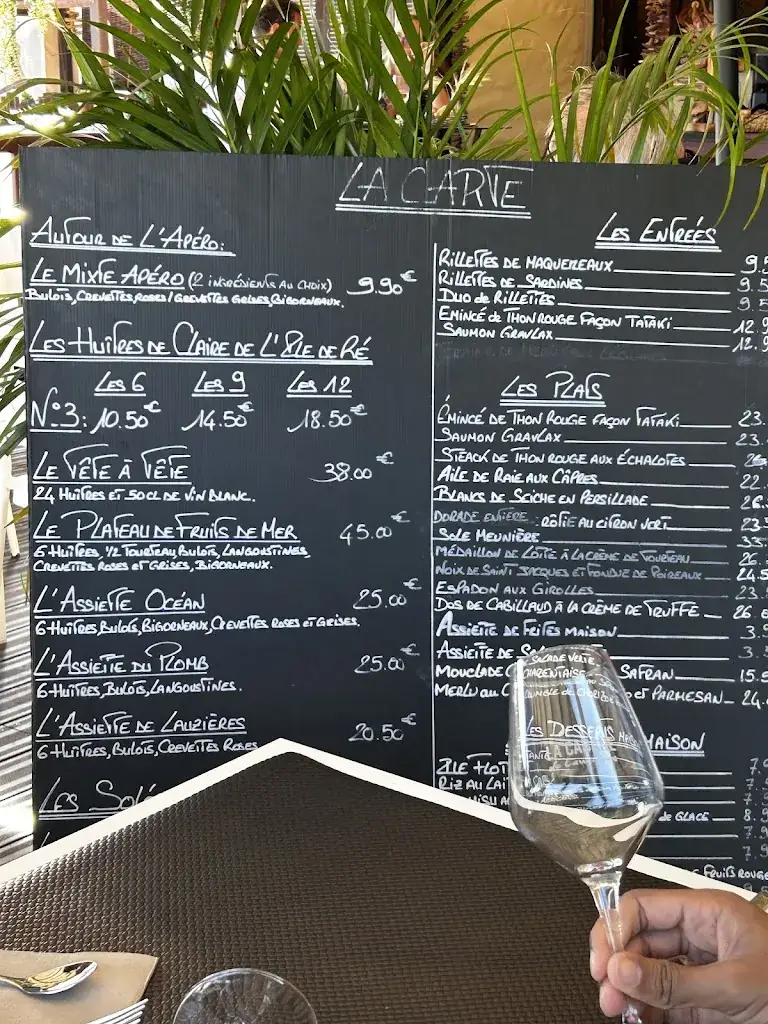 LA CARTE
AUTOUR DE L'APÉRO:
LE MIXTE APÉRO (2 INGRÉDIENTS AU CHOIX) 9.90€
BULOTS, CREVETTES ROSES/CREVETTES GRISES, BIGORNEAUX.
LES HUÎTRES DE CLAIRE DE L'ILE DE RÉ
LES 6 LES 9 LES 12
N°3: 10.50€ 14.50€ 18.50€
LE TÊTE À TÊTE 38.00€
24 HUÎTRES ET 50CL DE VIN BLANC.
LE PLATEAU DE FRUITS DE MER 45.00€
6 HUÎTRES, 1/2 TOURTEAU, BULOTS, LANGOUSTINES,
CREVETTES ROSES ET GRISES, BIGORNEAUX.
L'ASSIETTE OCÉAN 25.00€
6 HUÎTRES, BULOTS, BIGORNEAUX, CREVETTES ROSES ET GRISES.
L'ASSIETTE DU PLOMB 25.00€
6 HUÎTRES, BULOTS, LANGOUSTINES.
L'ASSIETTE DE LAUZIÈRES 20.50€
6 HUÎTRES, BULOTS, CREVETTES ROSES
LES
LES ENTREÉS
RILLETTES DE MAQUEREAUX 9.5
RILLETTES DE SARDINES 9.5
DUO DE RILLETTES 9.5
EMINCÉ DE THON ROUGE FAÇON TATAKI 12.9
SAUMON GRAVLAX 12.9
LES PLATS
ÉMINCÉ DE THON ROUGE FAÇON TATAKI 23.
SAUMON GRAVLAX 23.
STEACK DE THON ROUGE AUX ÉCHALOTES 26
AILE DE RAIE AUX CÂPRES 22.
BLANCS DE SEICHE EN PERSILLADE 26.
DORADE ENTIÈRE: RÔTIE AU CITRON VERT 23
SOLE MEUNIÈRE 33.
MÉDAILLON DE LOTTE À LA CRÈME DE TOURTEAU 26.
NOIX DE SAINT JACQUES ET FONDUE DE POIREAUX 24.5
ESPADON AUX GIROLLES 23.9
DOS DE CABILLAUD À LA CRÈME DE TRUFFE 26.
ASSIETTE DE FRITES MAISON 3.9
ASSIETTE DE SALADE VERTE 3.
MOUCLADE CHARENTAISE AU SAFRAN 15.5
MERLU AU ET PARMESAN 24.
LES DESSERTS MAISON
7.9
RIZ AU LAIT 7.
7.
DE GLACE 8.9
7.9
7.9
FRUITS ROUGE